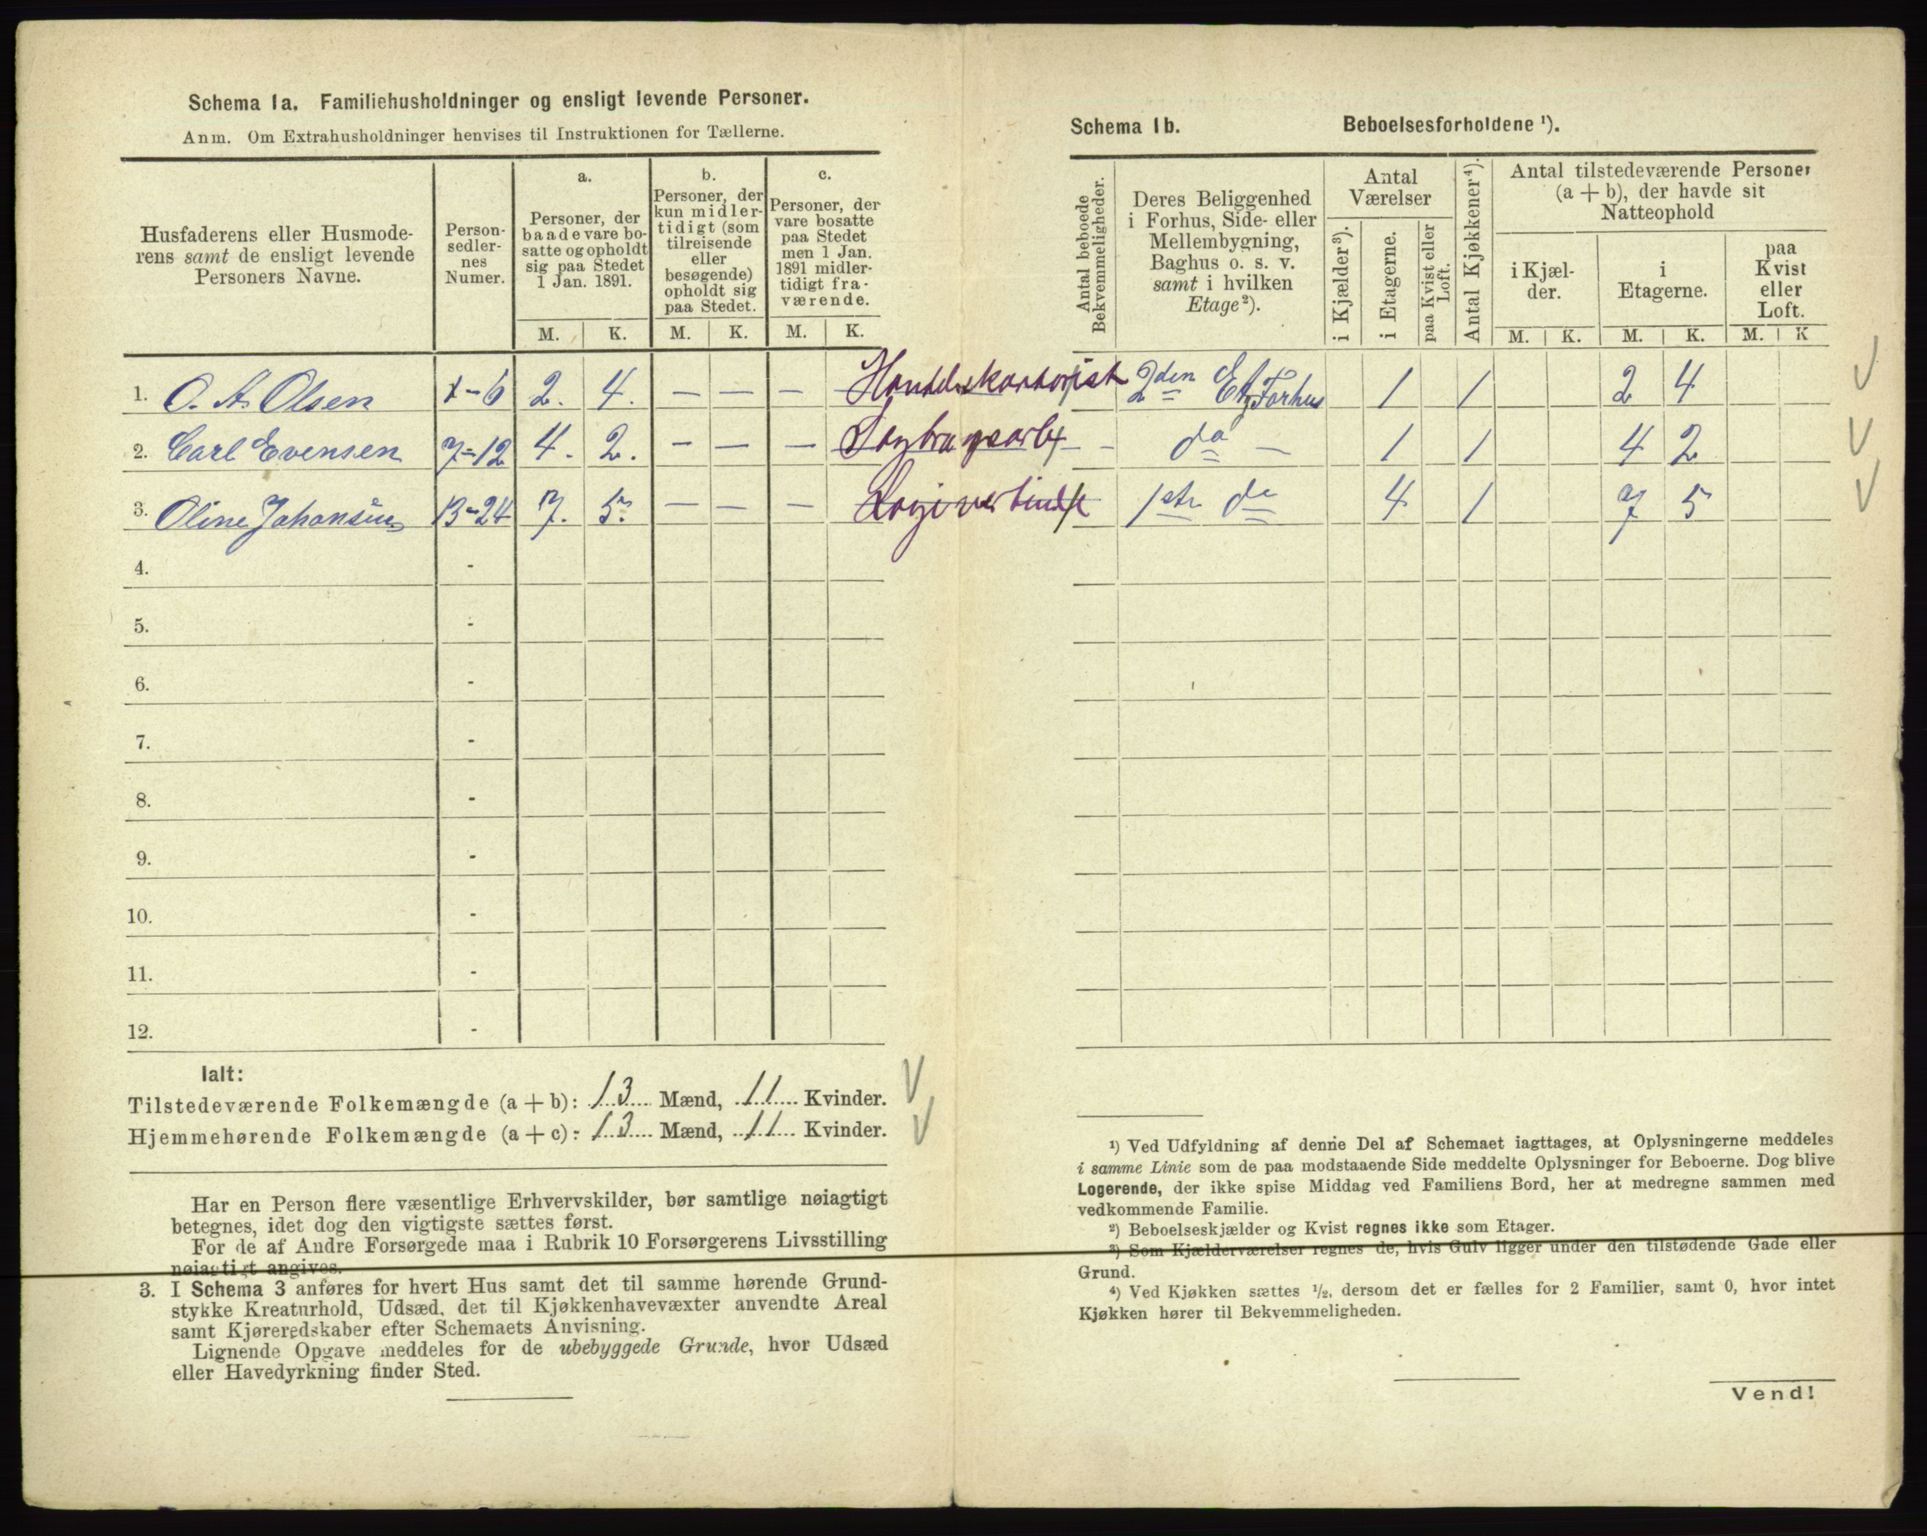 Schema 1a. Familiehusholdninger og ensligt levende Personer.
Anm. Om Extrahusholdninger henvises til Instruktionen for Tællerne.
Husfaderens eller Husmode-
rens samt de ensligt levende
Personers Navne.
Person-
sedler-
nes
Numer.
a.
Personer, der
baade vare bo-
satte og opholdt
sig paa Stedet
1 Jan. 1891.
b.
Personer, der
kun midler-
tidigt (som
tilreisende
eller
besøgende)
opholdt sig
paa Stedet.
c.
Personer, der
vare bosatte
paa Stedet
men 1 Jan.
1891 midler-
tidigt fra-
værende.
M. K. M. K. M. K.
1. O. A. Olsen 1-6 2. 4. — — — Handelskontorist
2. Carl Evensen 7-12 4. 2. — — —
3. Oline Johansen 13-24 7. 5. — — —
4. -
5. -
6. -
7. -
8. -
9. -
10. -
11. -
12. -
Ialt:
Tilstedeværende Folkemængde (a + b): 13 Mænd, 11 Kvinder.
Hjemmehørende Folkemængde (a + c): 13 Mænd, 11 Kvinder.
Har en Person flere væsentlige Erhvervskilder, bør samtlige nøiagtigt
betegnes, idet dog den vigtigste sættes først.
For de af Andre Forsørgede maa i Rubrik 10 Forsørgerens Livsstilling
nøiagtigt angives.
3. I Schema 3 anføres for hvert Hus samt det til samme hørende Grund-
stykke Kreaturhold, Udsæd, det til Kjøkkenhavevæxter anvendte Areal
samt Kjøreredskaber efter Schemaets Anvisning.
Lignende Opgave meddeles for de ubebyggede Grunde, hvor Udsæd
eller Havedyrkning finder Sted.
Schema 1b. Beboelsesforholdene ¹).
Antal beboede
Bekvemmeligheder.
Deres Beliggenhed
i Forhus, Side- eller
Mellembygning,
Baghus o. s. v.
samt i hvilken
Etage²).
Antal
Værelser
i Kjælder³).
i Etagerne.
paa Kvist eller
Loft.
Antal Kjøkkener⁴).
Antal tilstedeværende Personer
(a + b), der havde sit
Natteophold
i Kjæl-
der.
i
Etagerne.
paa
Kvist
eller
Loft.
M. K. M. K. M. K
2den Etg Forhus 1 1 2 4
- do — 1 1 4 2
1ste do 4 1 7 5
¹) Ved Udfyldning af denne Del af Schemaet iagttages, at Oplysningerne meddeles
i samme Linie som de paa modstaaende Side meddelte Oplysninger for Beboerne. Dog blive
Logerende, der ikke spise Middag ved Familiens Bord, her at medregne sammen med
vedkommende Familie.
²) Beboelseskjælder og Kvist regnes ikke som Etager.
³) Som Kjælderværelser regnes de, hvis Gulv ligger under den tilstødende Gade eller
Grund.
⁴) Ved Kjøkken sættes ½, dersom det er fælles for 2 Familier, samt 0, hvor intet
Kjøkken hører til Bekvemmeligheden.
Vend!